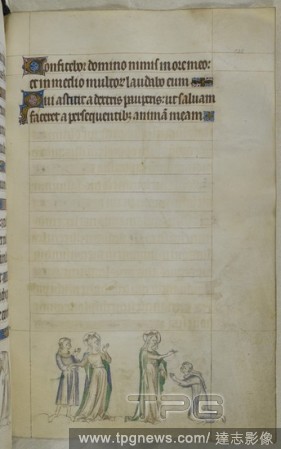 Confitebor domino nimis in ore meo:
et in medio multor laudabo eum
Qui astitit a dextris pauperis: ut saluam
faceret a persequentibz animã meam
TPG
www.tpgnews.com/ 達志影像